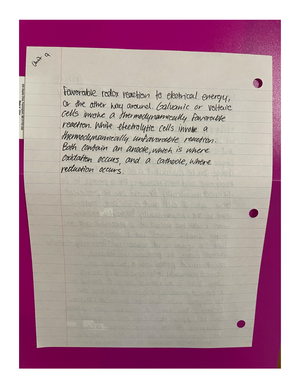 Unit 9
Favorable redox reaction to electrical energy,
or the other way around. Galvanic or voltaic
cells involve a thermodynamically favorable
reaction. While electrolytic cells involve a
thermodynamically unfavorable reaction.
Both contain an anode, which is where
oxidation occurs, and a cathode, where
reduction occurs.